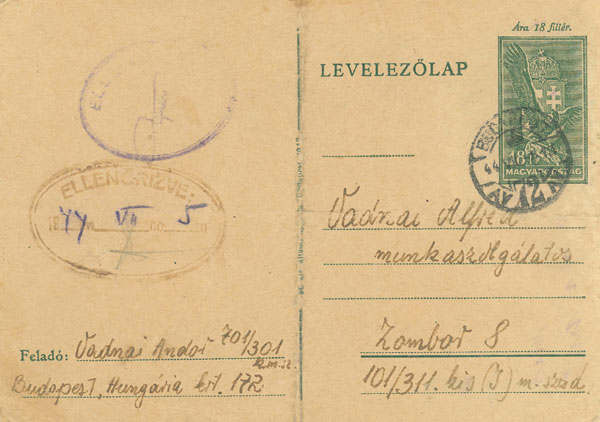 Ára 18 fillér.
LEVELEZŐLAP
18
MAGYARORSZÁG
72
ELLENŐRIZVE:
44 VII 5
Vadnai Alfréd
munkaszolgálatos
Zombor 8
101/311. kis (I) m. szd
Feladó: Vadnai Andor 701/301
k.m.sz.
Budapest, Hungária krt. 172